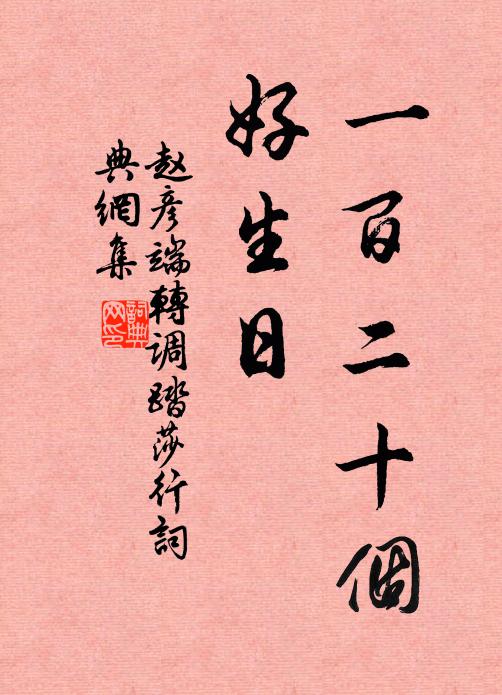 一百二十個
好生日
赵彦端轉调踏莎行詞
典網集
詞典网印